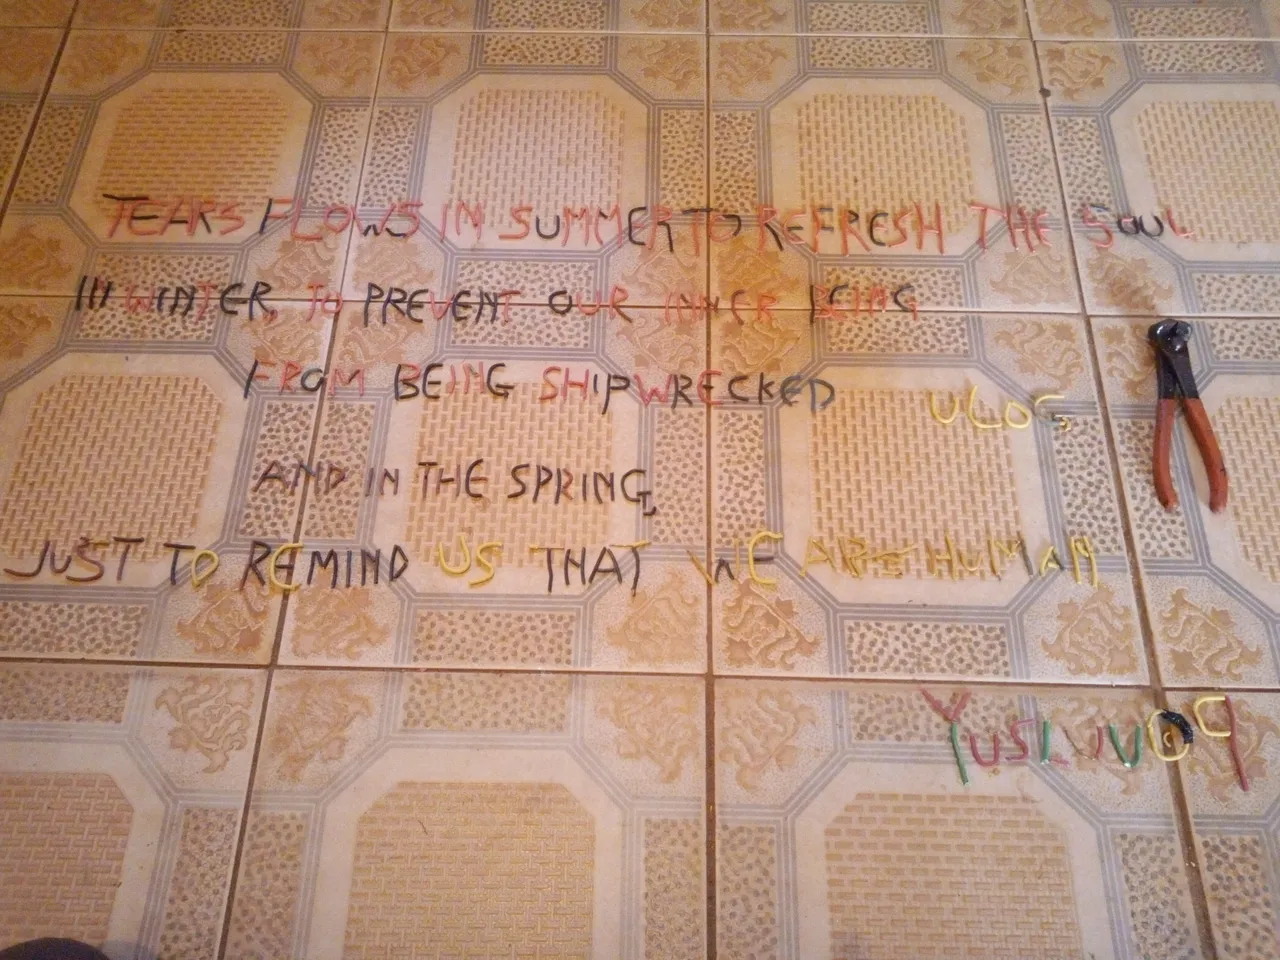 TEARS FLOWS IN SUMMER TO REFRESH THE SOUL
IN WINTER, TO PREVENT OUR INNER BEING
FROM BEING SHIPWRECKED
VLOG
AND IN THE SPRING,
JUST TO REMIND US THAT WE ARE HUMAN